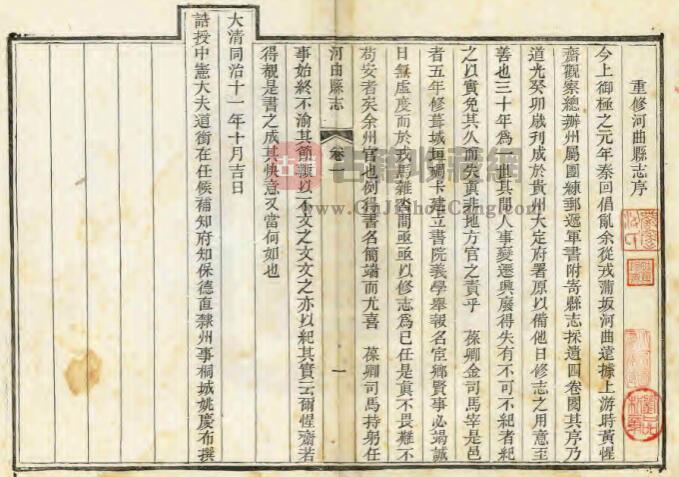 重修河曲縣志序
今上御極之元年秦回倡亂余從戎蒲坂河曲遠據上游時黃惺
齋觀察總辦州屬團練郵遞軍書附寄縣志採遺四卷閱其序乃
道光癸卯歲刊成於貴州大定府署原以備他日修志之用意至
善也三十年為一世其間人事變遷興廢得失有不可不紀者紀
之以實免其久而失真非地方官之責乎 葆卿金司馬宰是邑
者五年修葺城垣碉卡建立書院義學舉報名宦鄉賢事必竭誠
日無虛度而於戎馬雜沓間亟亟以修志為己任是眞不畏難不
苟安者矣余州官也例得書名簡端而尤喜 葆卿司馬持躬任
河曲縣志 卷一 一
事始終不渝其節輒以不文之文文之亦以紀其實云爾惺齋若
得覩是書之成其快意又當何如也
大清同治十一年十月吉日
誥授中憲大夫道銜在任候補知府知保德直隸州事桐城姚慶布撰
古籍收藏网
www.GuJiShouCang.Com